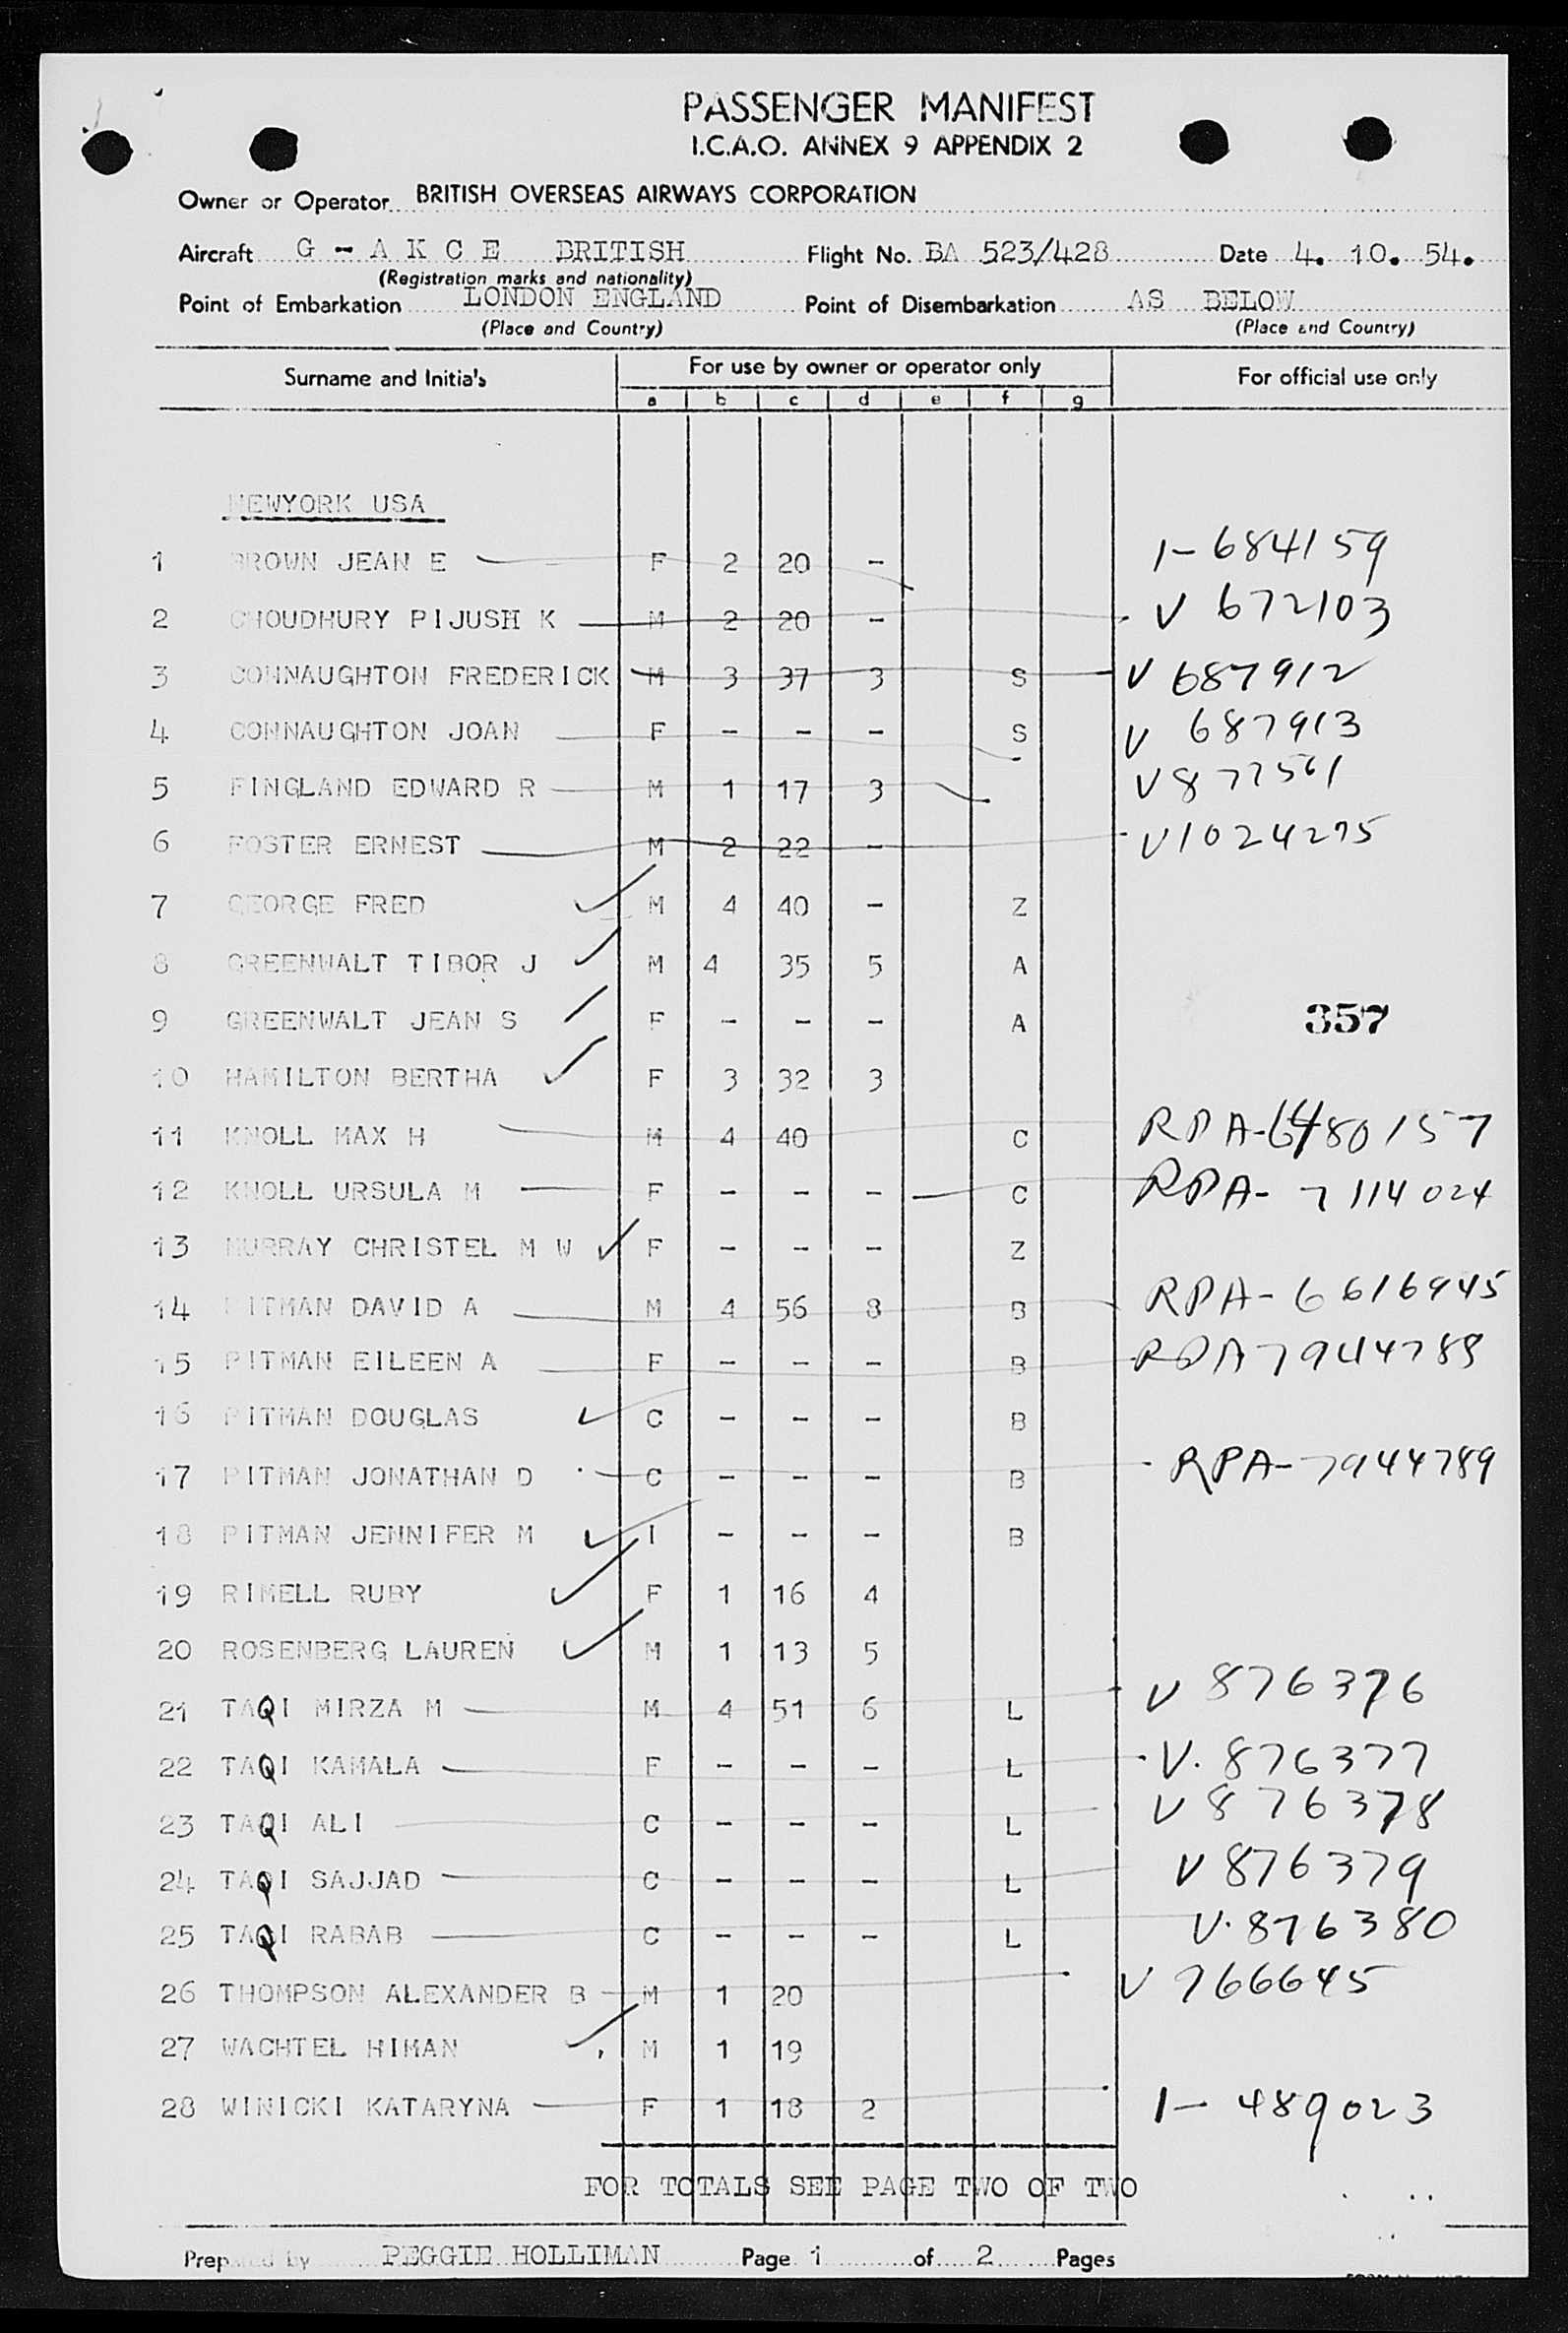 PASSENGER MANIFEST
I.C.A.O. ANNEX 9 APPENDIX 2
Owner or Operator BRITISH OVERSEAS AIRWAYS CORPORATION
Aircraft G - A K C E BRITISH Flight No. BA 523/428 Date 4. 10. 54.
(Registration marks and nationality)
Point of Embarkation LONDON ENGLAND Point of Disembarkation AS BELOW
(Place and Country) (Place and Country)
Surname and Initials For use by owner or operator only For official use only
a b c d e f g
NEWYORK USA
1 BROWN JEAN E F 2 20 - 1-684159
2 CHOUDHURY PIJUSH K M 2 20 - V 672103
3 CONNAUGHTON FREDERICK M 3 37 3 S V 687912
4 CONNAUGHTON JOAN F - - - S V 687913
5 FINGLAND EDWARD R M 1 17 3 V877561
6 FOSTER ERNEST M 2 22 - V1024275
7 GEORGE FRED M 4 40 - Z
8 GREENWALT TIBOR J M 4 35 5 A
9 GREENWALT JEAN S F - - - A 357
10 HAMILTON BERTHA F 3 32 3
11 KNOLL MAX H M 4 40 C RPA-6480157
12 KNOLL URSULA M F - - - C RPA-7114024
13 MURRAY CHRISTEL M W F - - - Z
14 PITMAN DAVID A M 4 56 8 B RPA-6616945
15 PITMAN EILEEN A F - - - B RPA7944788
16 PITMAN DOUGLAS C - - - B
17 PITMAN JONATHAN D C - - - B RPA-7944789
18 PITMAN JENNIFER M I - - - B
19 RIMELL RUBY F 1 16 4
20 ROSENBERG LAUREN M 1 13 5
21 TAQI MIRZA M M 4 51 6 L V 876376
22 TAQI KAMALA F - - - L V. 876377
23 TAQI ALI C - - - L V 876378
24 TAQI SAJJAD C - - - L V 876379
25 TAQI RABAB C - - - L V. 876380
26 THOMPSON ALEXANDER B M 1 20 V 766645
27 WACHTEL HIMAN M 1 19
28 WINICKI KATARYNA F 1 18 2 1- 489023
FOR TOTALS SEE PAGE TWO OF TWO
Prepared by PEGGIE HOLLIMAN Page 1 of 2 Pages